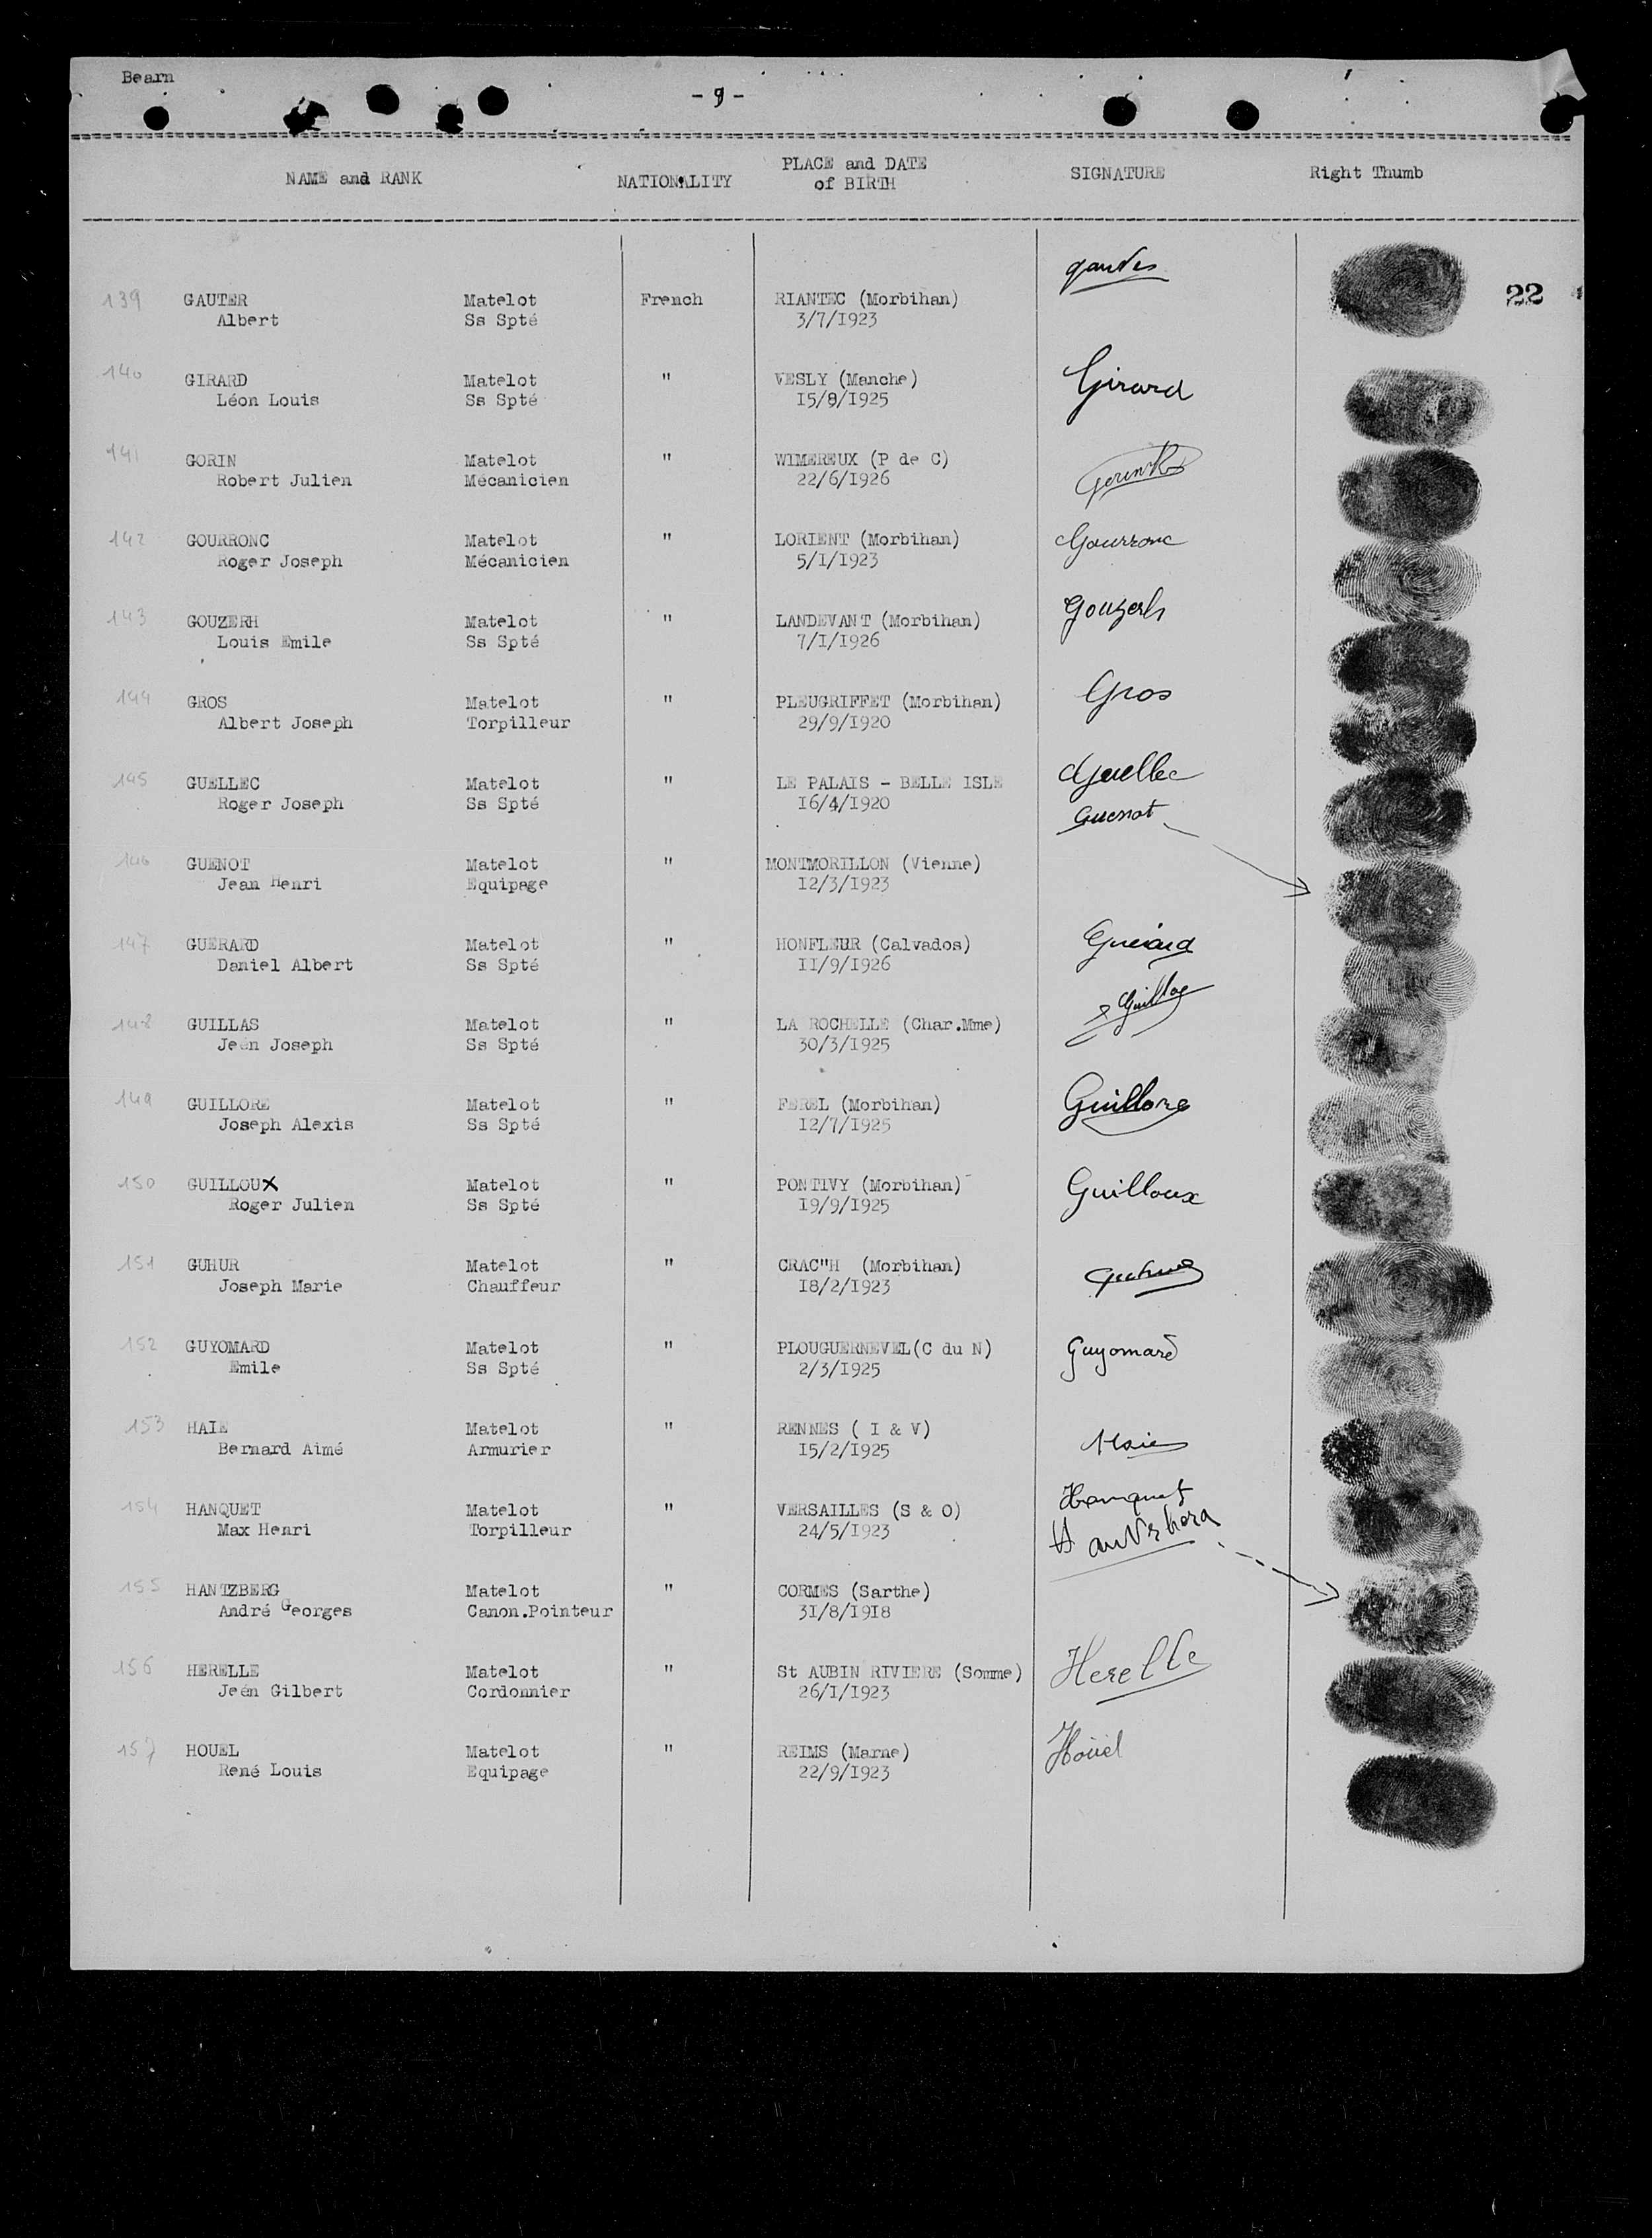 Bearn
- 9 -
NAME and RANK NATIONALITY PLACE and DATE of BIRTH SIGNATURE Right Thumb
22
139 GAUTER Matelot French RIANTEC (Morbihan)
Albert Ss Spté 3/7/I923
140 GIRARD Matelot " VESLY (Manche) Girard
Léon Louis Ss Spté I5/8/I925
141 GORIN Matelot " WIMEREUX (P de C)
Robert Julien Mécanicien 22/6/I926
142 GOURRONC Matelot " LORIENT (Morbihan) Gourronc
Roger Joseph Mécanicien 5/I/I923
143 GOUZERH Matelot " LANDEVANT (Morbihan) Gouzerh
Louis Emile Ss Spté 7/I/I926
144 GROS Matelot " PLEUGRIFFET (Morbihan) Gros
Albert Joseph Torpilleur 29/9/I920
145 GUELLEC Matelot " LE PALAIS - BELLE ISLE Guellec
Roger Joseph Ss Spté I6/4/I920 Guenot
146 GUENOT Matelot " MONTMORILLON (Vienne)
Jean Henri Equipage I2/3/I923
147 GUERARD Matelot " HONFLEUR (Calvados) Guérard
Daniel Albert Ss Spté II/9/I926
148 GUILLAS Matelot " LA ROCHELLE (Char.Mme) Guillas
Jean Joseph Ss Spté 30/3/I925
149 GUILLORE Matelot " FEREL (Morbihan) Guillore
Joseph Alexis Ss Spté I2/7/I925
150 GUILLOUX Matelot " PONTIVY (Morbihan) Guilloux
Roger Julien Ss Spté I9/9/I925
151 GUHUR Matelot " CRAC"H (Morbihan) Guhur
Joseph Marie Chauffeur I8/2/I923
152 GUYOMARD Matelot " PLOUGUERNEVEL(C du N) Guyomard
Emile Ss Spté 2/3/I925
153 HAIE Matelot " RENNES ( I & V) Haie
Bernard Aimé Armurier I5/2/I925
154 HANQUET Matelot " VERSAILLES (S & O) Hanquet
Max Henri Torpilleur 24/5/I923
155 HANTZBERG Matelot " CORMES (Sarthe)
André Georges Canon.Pointeur 3I/8/I9I8
156 HERELLE Matelot " St AUBIN RIVIERE (Somme) Herelle
Jeén Gilbert Cordonnier 26/I/I923
157 HOUEL Matelot " REIMS (Marne) Houël
René Louis Equipage 22/9/I923